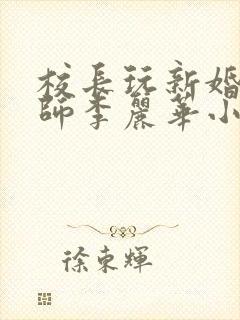 校長玩新婚
師李麗華小
徐東輝